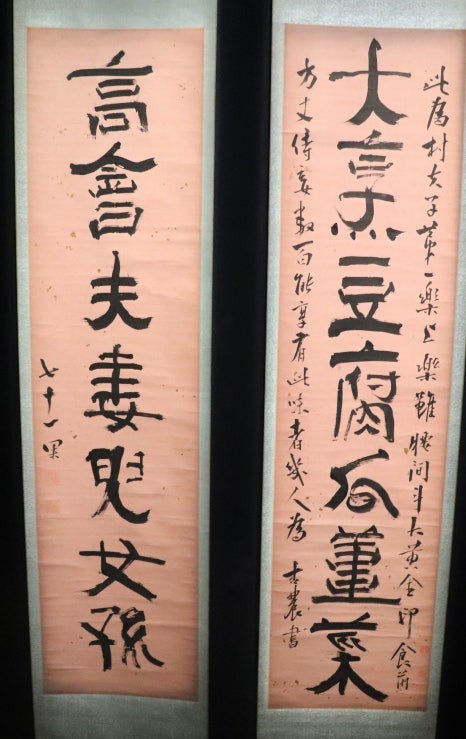 此爲村夫子第一樂上樂雖腰間斗大黃金印食前
大烹豆腐瓜薑菜
方丈侍妾數百能享有此味者幾人爲 杏農書
高會夫妻兒女孫
七十一果